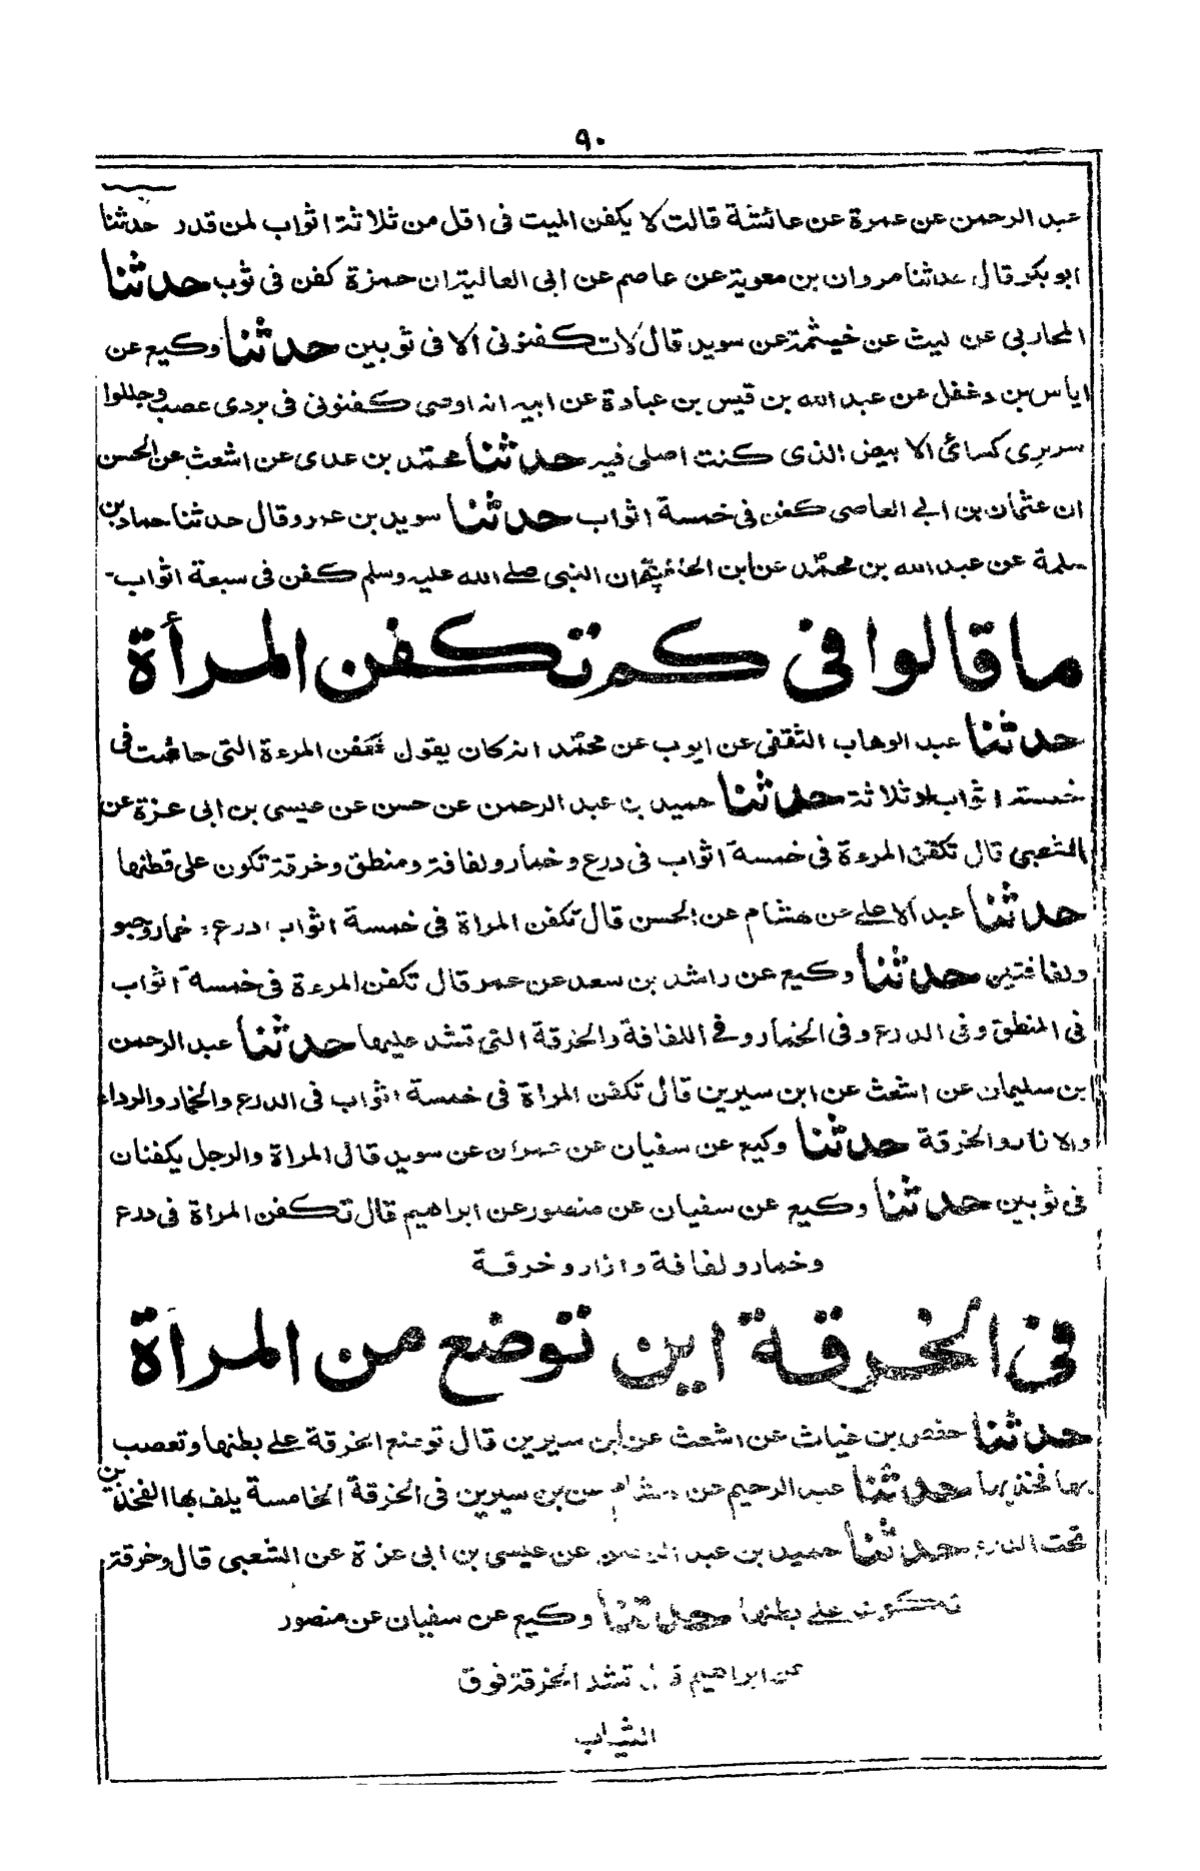 ٩٠
عبد الرحمن عن عمرة عن عائشة قالت لا يكفن الميت فى اقل من ثلاثة اثواب لمن قدر حدثنا
ابو بكر قال حدثنا مروان بن معوية عن عاصم عن ابى العالية ان حمزة كفن فى ثوب حدثنا
المحاربى عن ليث عن خيثمة عن سويد قال لا تكفنونى الا فى ثوبين حدثنا وكيع عن
اياس بن دغفل عن عبد الله بن قيس بن عبادة عن ابيه انه اوصى كفنونى فى بردى عصب وجللوا
سريرى كسائى الا بيض الذى كنت اصلى فيه حدثنا محمد بن عدى عن اشعث عن الحسن
ان عثمان بن ابى العاصى كفن فى خمسة اثواب حدثنا سويد بن عمرو قال حدثنا حماد بن
سلمة عن عبد الله بن محمد عن ابن الحنفية ان النبى صلے الله عليه وسلم كفن فى سبعة اثواب-
ما قالوا فى كم تكفن المرأة
حدثنا عبد الوهاب الثقفى عن ايوب عن محمد انه كان يقول تكفن المرءة التى حاضت فى
خمسة اثواب او ثلاثة حدثنا حميد بن عبد الرحمن عن حسن عن عيسى بن ابى عزة عن
الشعبى قال تكفن المرءة فى خمسة اثواب فى درع و خمار ولفافة ومنطق وخرقة تكون على قطنها
حدثنا عبد الاعلے عن هشام عن الحسن قال تكفن المراة فى خمسة اثواب درع وخمار وحقو
ولفافتين حدثنا وكيع عن راشد بن سعد عن عمر قال تكفن المرءة فى خمسة اثواب
فى المنطق وفى الدرع وفى الخمار وفے اللفافة والخرقة التى تشد عليها حدثنا عبد الرحمن
ابن سليمان عن اشعث عن ابن سيرين قال تكفن المراة فى خمسة اثواب فى الدرع والخمار والرداء
والازار والخرقة حدثنا وكيع عن سفيان عن عمران عن سويد قال المراة والرجل يكفنان
فى ثوبين حدثنا وكيع عن سفيان عن منصور عن ابراهيم قال تكفن المراة فى درع
وخمار ولفافة وازار وخرقة
فى الخرقة اين توضع من المرأة
حدثنا حفص بن غياث عن اشعث عن ابن سيرين قال توضع الخرقة علے بطنها وتعصب
بها فخذيها حدثنا عبد الرحيم عن هشام عن بن سيرين فى الخرقة الخامسة يلف بها الفخذين
تحت الدرع حدثنا حميد بن عبد الرحمن عن عيسى بن ابى عزة عن الشعبى قال وخرقة
تكون علے بطنها حدثنا وكيع عن سفيان عن منصور
عن ابراهيم قال تشد الخرقة فوق
الثياب